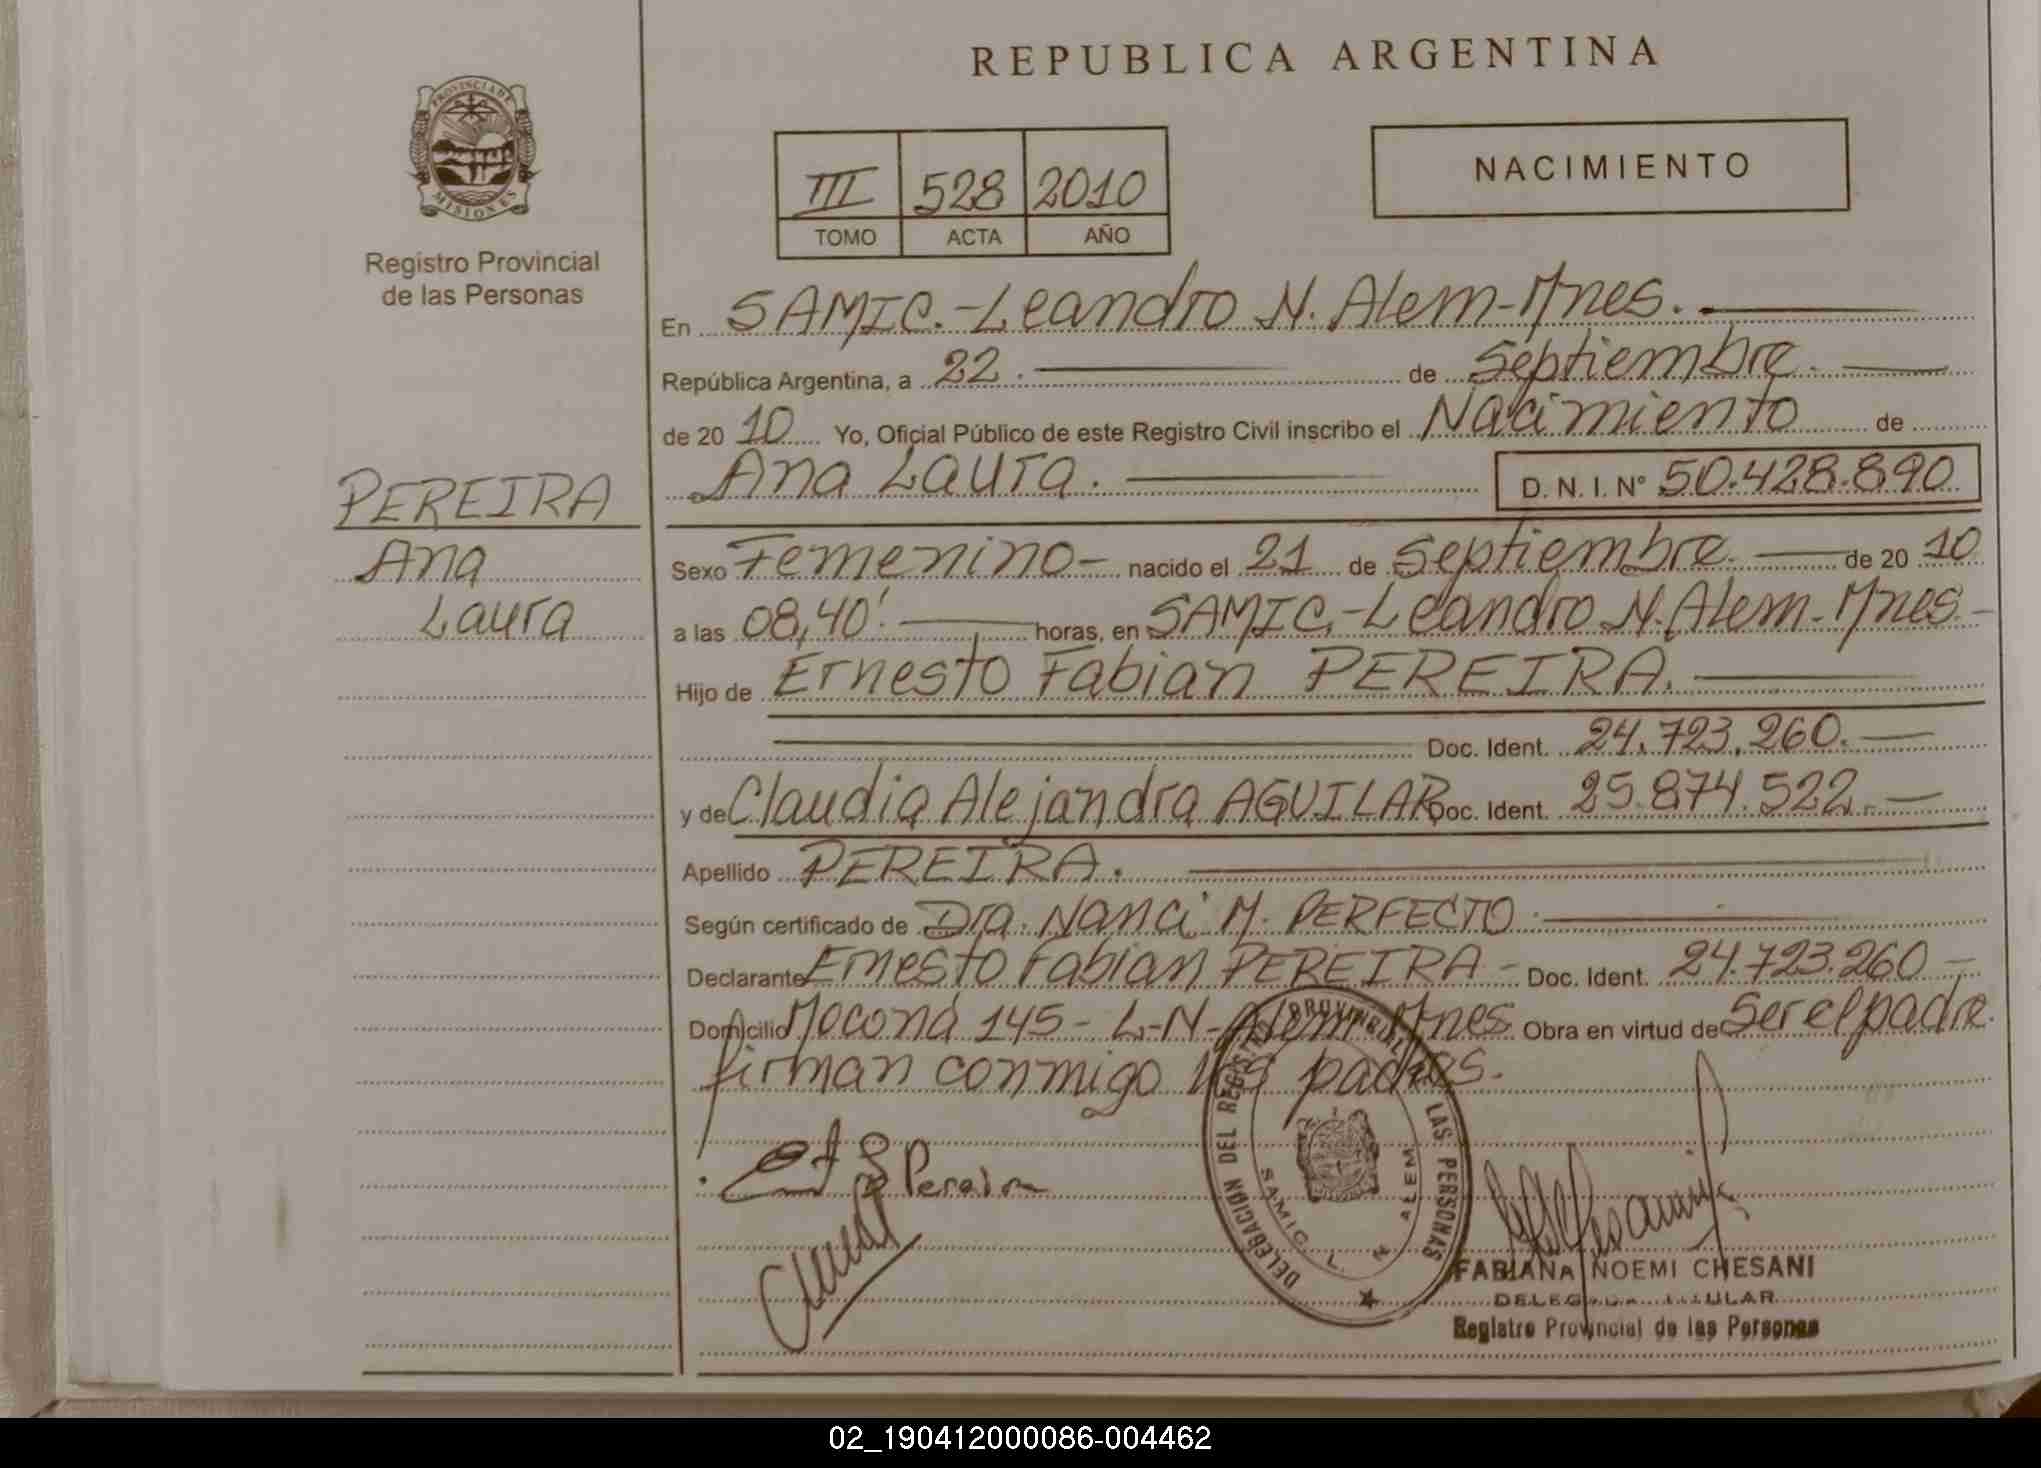 REPUBLICA ARGENTINA
PROVINCIA DE
MISIONES
Registro Provincial
de las Personas
III 528 2010
TOMO ACTA AÑO
NACIMIENTO
En SAMIC.-Leandro N. Alem-Mnes.
República Argentina, a 22. de Septiembre.
de 2010 Yo, Oficial Público de este Registro Civil inscribo el Nacimiento de
Ana Laura. D. N. I. Nº 50.428.890
PEREIRA
Ana
Laura
Sexo Femenino- nacido el 21 de Septiembre. de 2010
a las 08,40'. horas, en SAMIC.-Leandro N. Alem-Mnes.-
Hijo de Ernesto Fabian PEREIRA.
Doc. Ident. 24.723.260.
y de Claudia Alejandra AGUILAR Doc. Ident. 25.874.522.
Apellido PEREIRA.
Según certificado de Dra. Nanci M. PERFECTO.
Declarante Ernesto Fabian PEREIRA- Doc. Ident. 24.723.260
Domicilio Mocona 145- L-N-Alem Mnes. Obra en virtud de Ser el padre.
firman conmigo los padres.
DELEGACION DEL REGISTRO PROVINCIAL DE LAS PERSONAS
SAMIC. L. N. ALEM
Pereira
FABIANA NOEMI CHESANI
DELEGADA TITULAR
Registro Provincial de las Personas
02_190412000086-004462